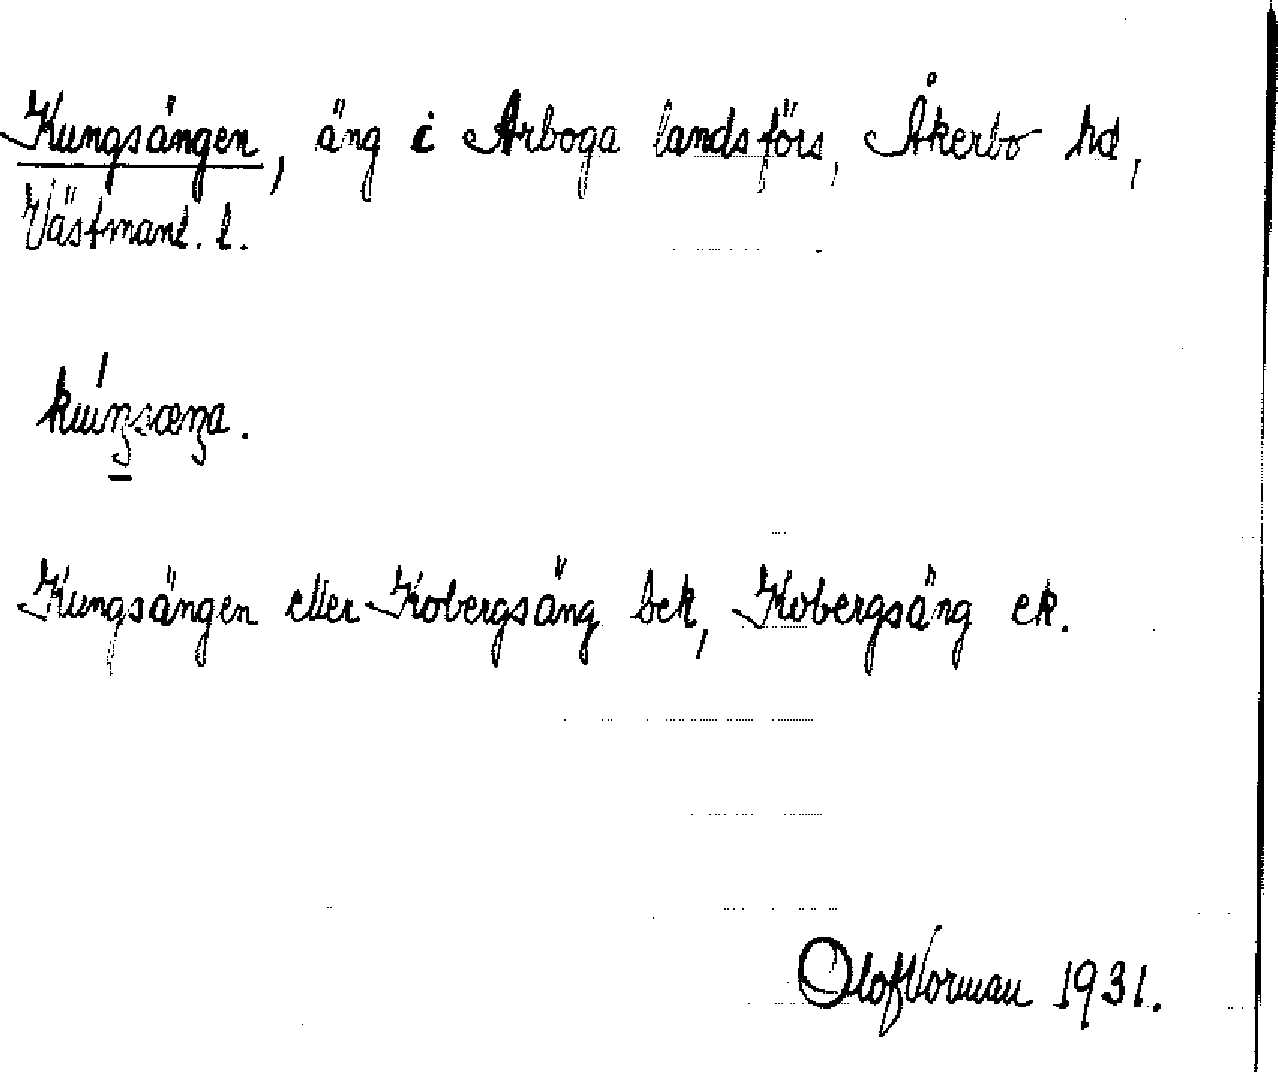 Kungsängen, äng i Arboga landsförs, Åkerbo hd,
Västmanl. l.
Kungsängen eller Kobergsäng bek, Kobergsäng ek.
Olof 1931.